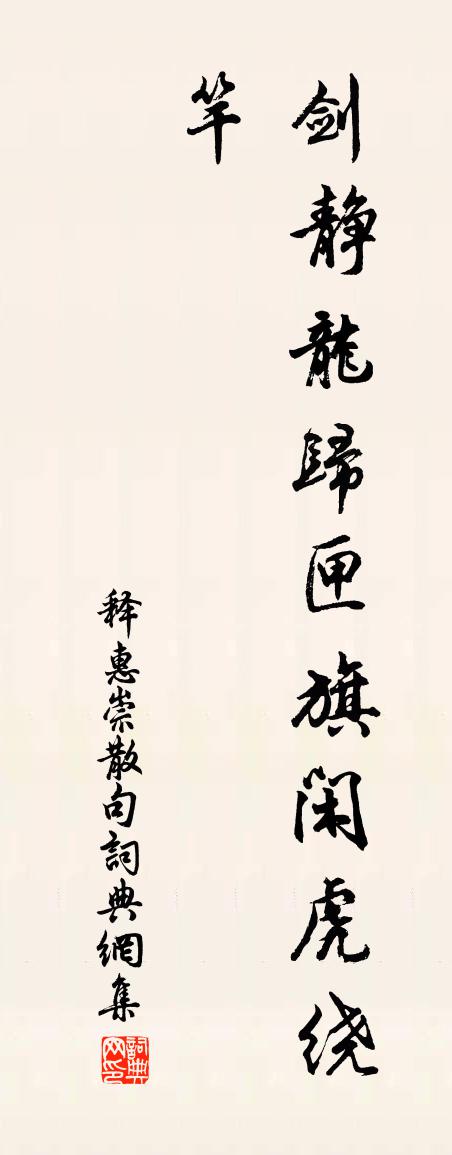 剑静龍歸匣旗闲虎绕
竿
释惠崇散句詞典網集
詞典
网印